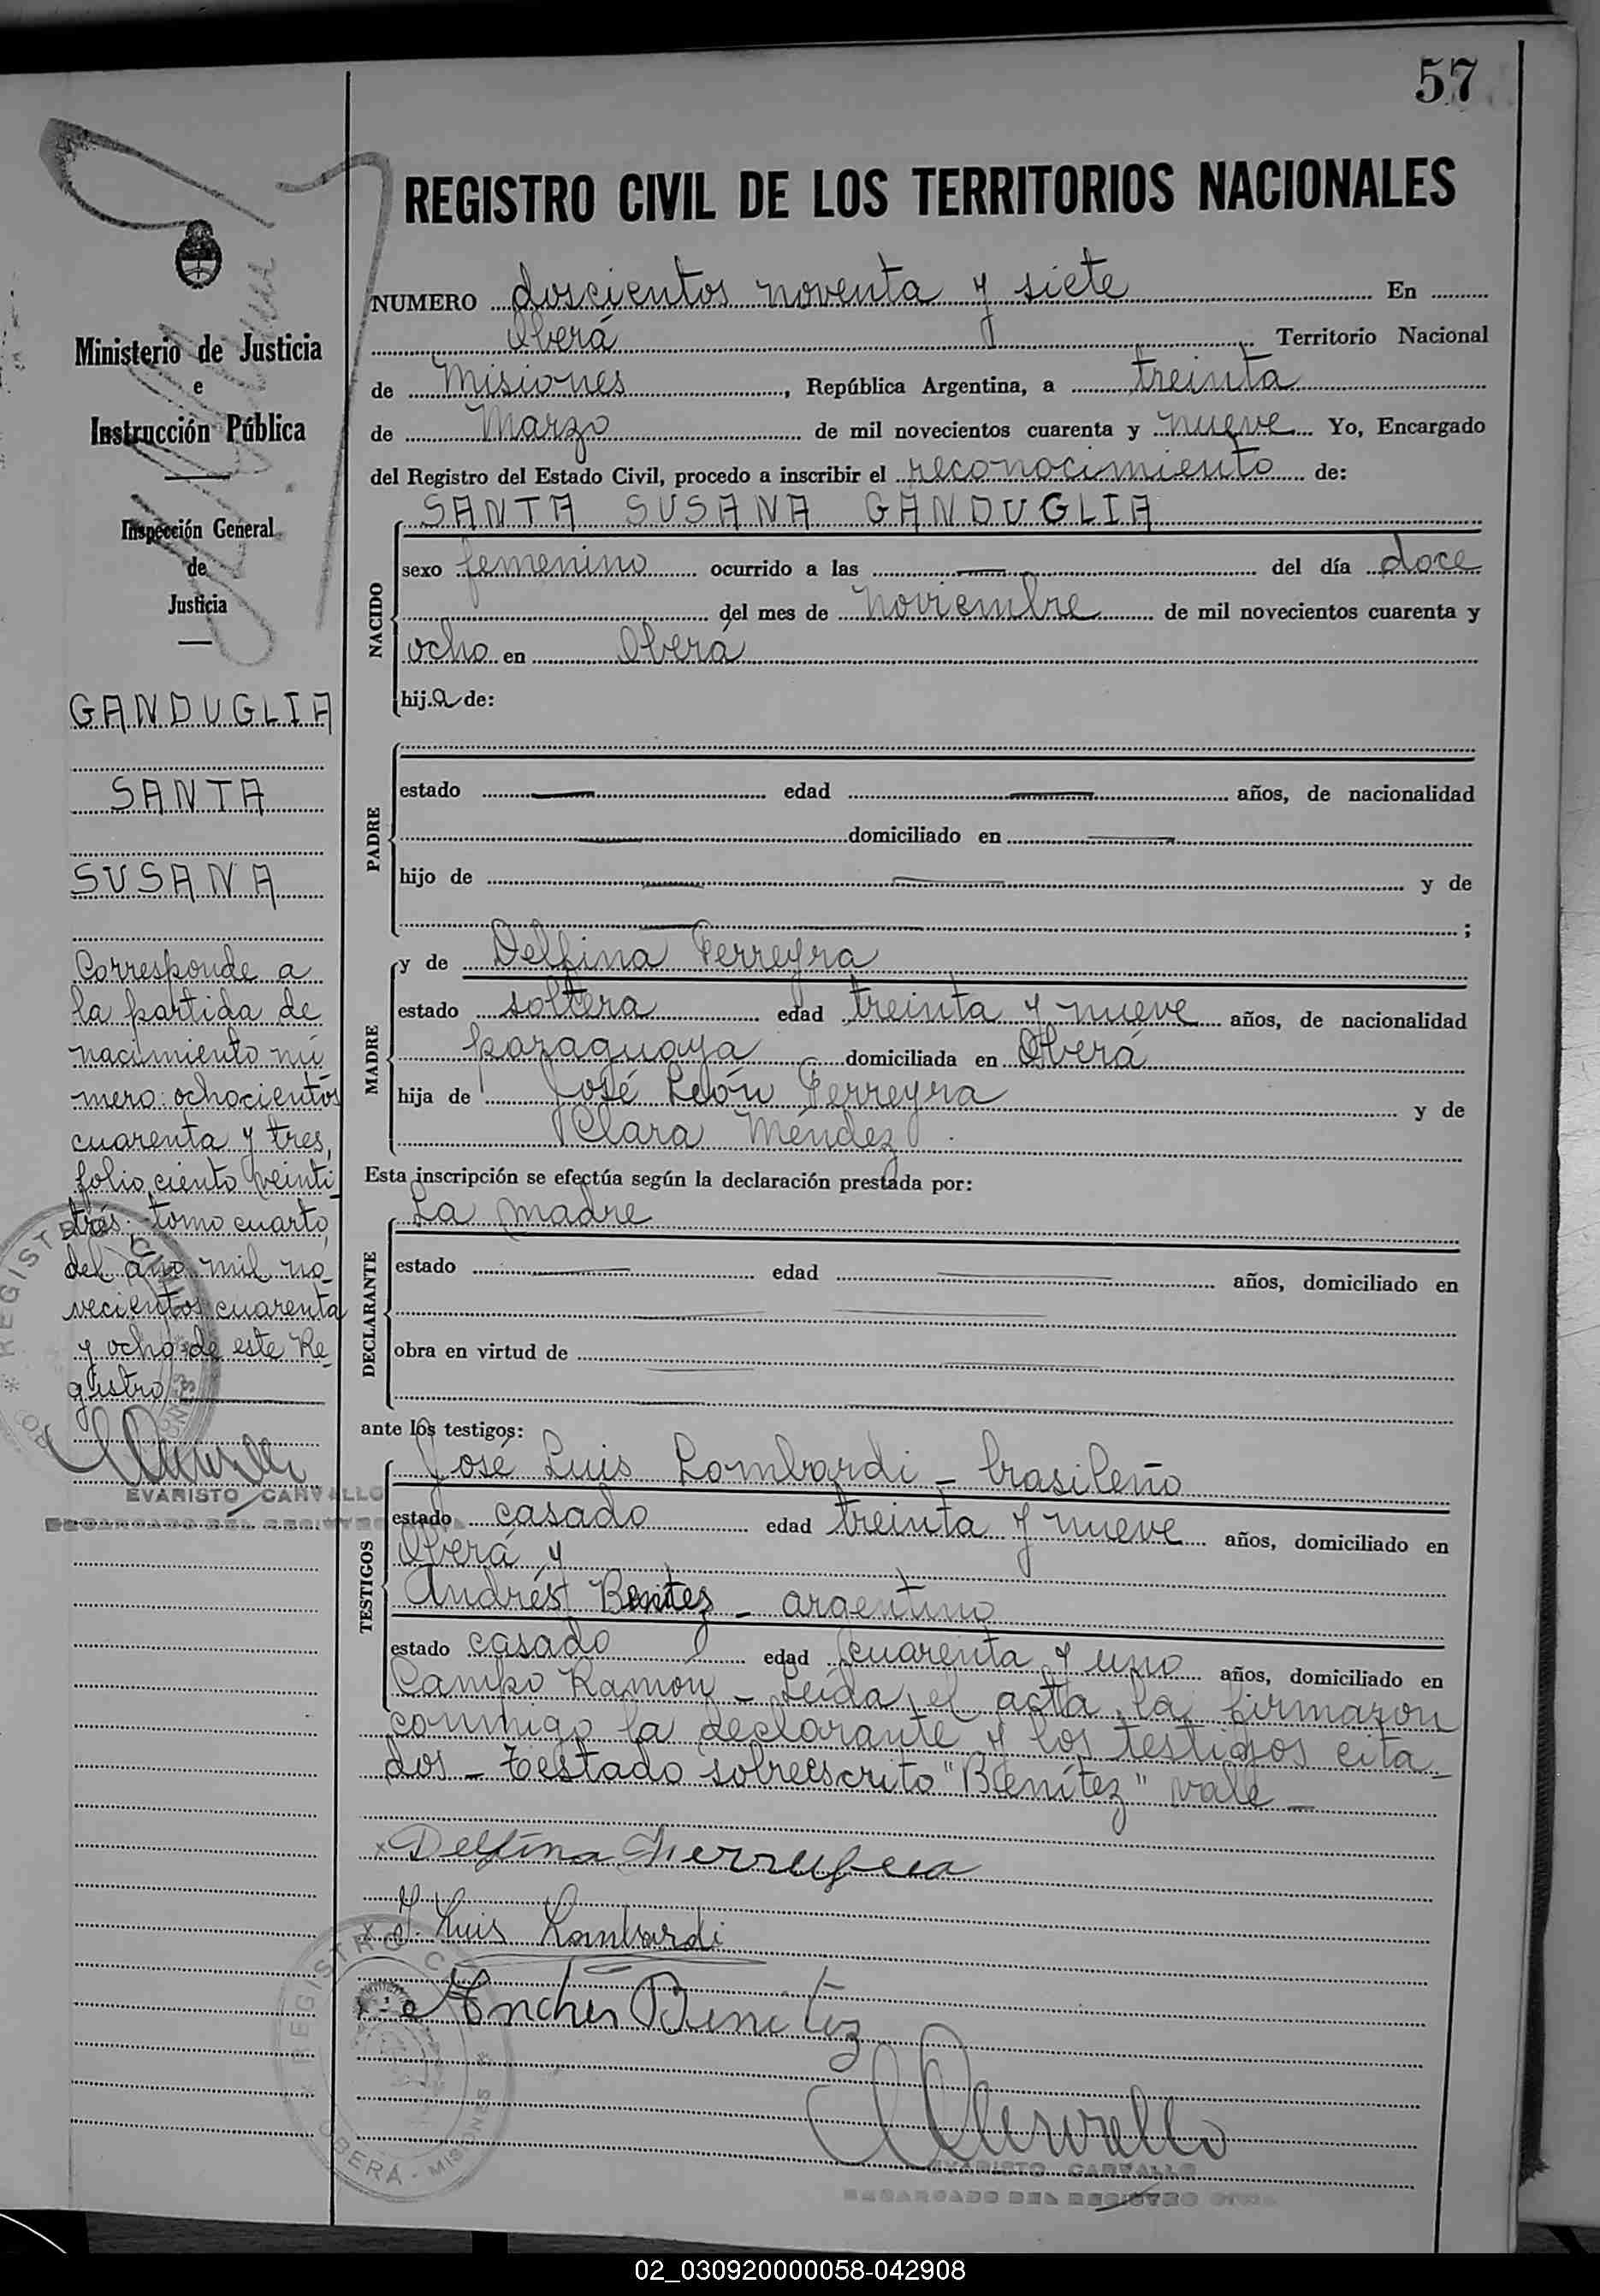 57
REGISTRO CIVIL DE LOS TERRITORIOS NACIONALES
NUMERO doscientos noventa y siete En
Oberá Territorio Nacional
de Misiones, República Argentina, a treinta
de Marzo de mil novecientos cuarenta y nueve Yo, Encargado
del Registro del Estado Civil, procedo a inscribir el reconocimiento de:
SANTA SUSANA GANDUGLIA
NACIDO
sexo femenino ocurrido a las — del día doce
del mes de noviembre de mil novecientos cuarenta y
ocho en Oberá
hija de:
PADRE
estado — edad — años, de nacionalidad
— domiciliado en —
hijo de — y de
— ;
MADRE
y de Delfina Ferreyra
estado soltera edad treinta y nueve años, de nacionalidad
paraguaya domiciliada en Oberá
hija de José León Ferreyra y de
Clara Méndez
Esta inscripción se efectúa según la declaración prestada por:
DECLARANTE
La madre
estado — edad — años, domiciliado en
obra en virtud de —
ante los testigos:
TESTIGOS
José Luis Lombardi - brasileño
estado casado edad treinta y nueve años, domiciliado en
Oberá y
Andrés Benitez - argentino
estado casado edad cuarenta y uno años, domiciliado en
Campo Ramón - Leída el acta, la firmaron
conmigo la declarante y los testigos cita-
dos - Testado sobreescrito "Benítez" vale -
x Delfina
x J. Luis Lombardi
Benitez
EVARISTO CARVALLO
ENCARGADO DEL REGISTRO CIVIL
REGISTRO CIVIL
OBERÁ - MISIONES
Ministerio de Justicia
e
Instrucción Pública
Inspección General
de
Justicia
GANDUGLIA
SANTA
SUSANA
Corresponde a
la partida de
nacimiento nú
mero: ochocientos
cuarenta y tres,
folio ciento veinti-
trés: tomo cuarto,
del año mil no-
vecientos cuarenta
y ocho de este Re-
gistro
EVARISTO CARVALLO
ENCARGADO DEL REGISTRO CIVIL
02_030920000058-042908